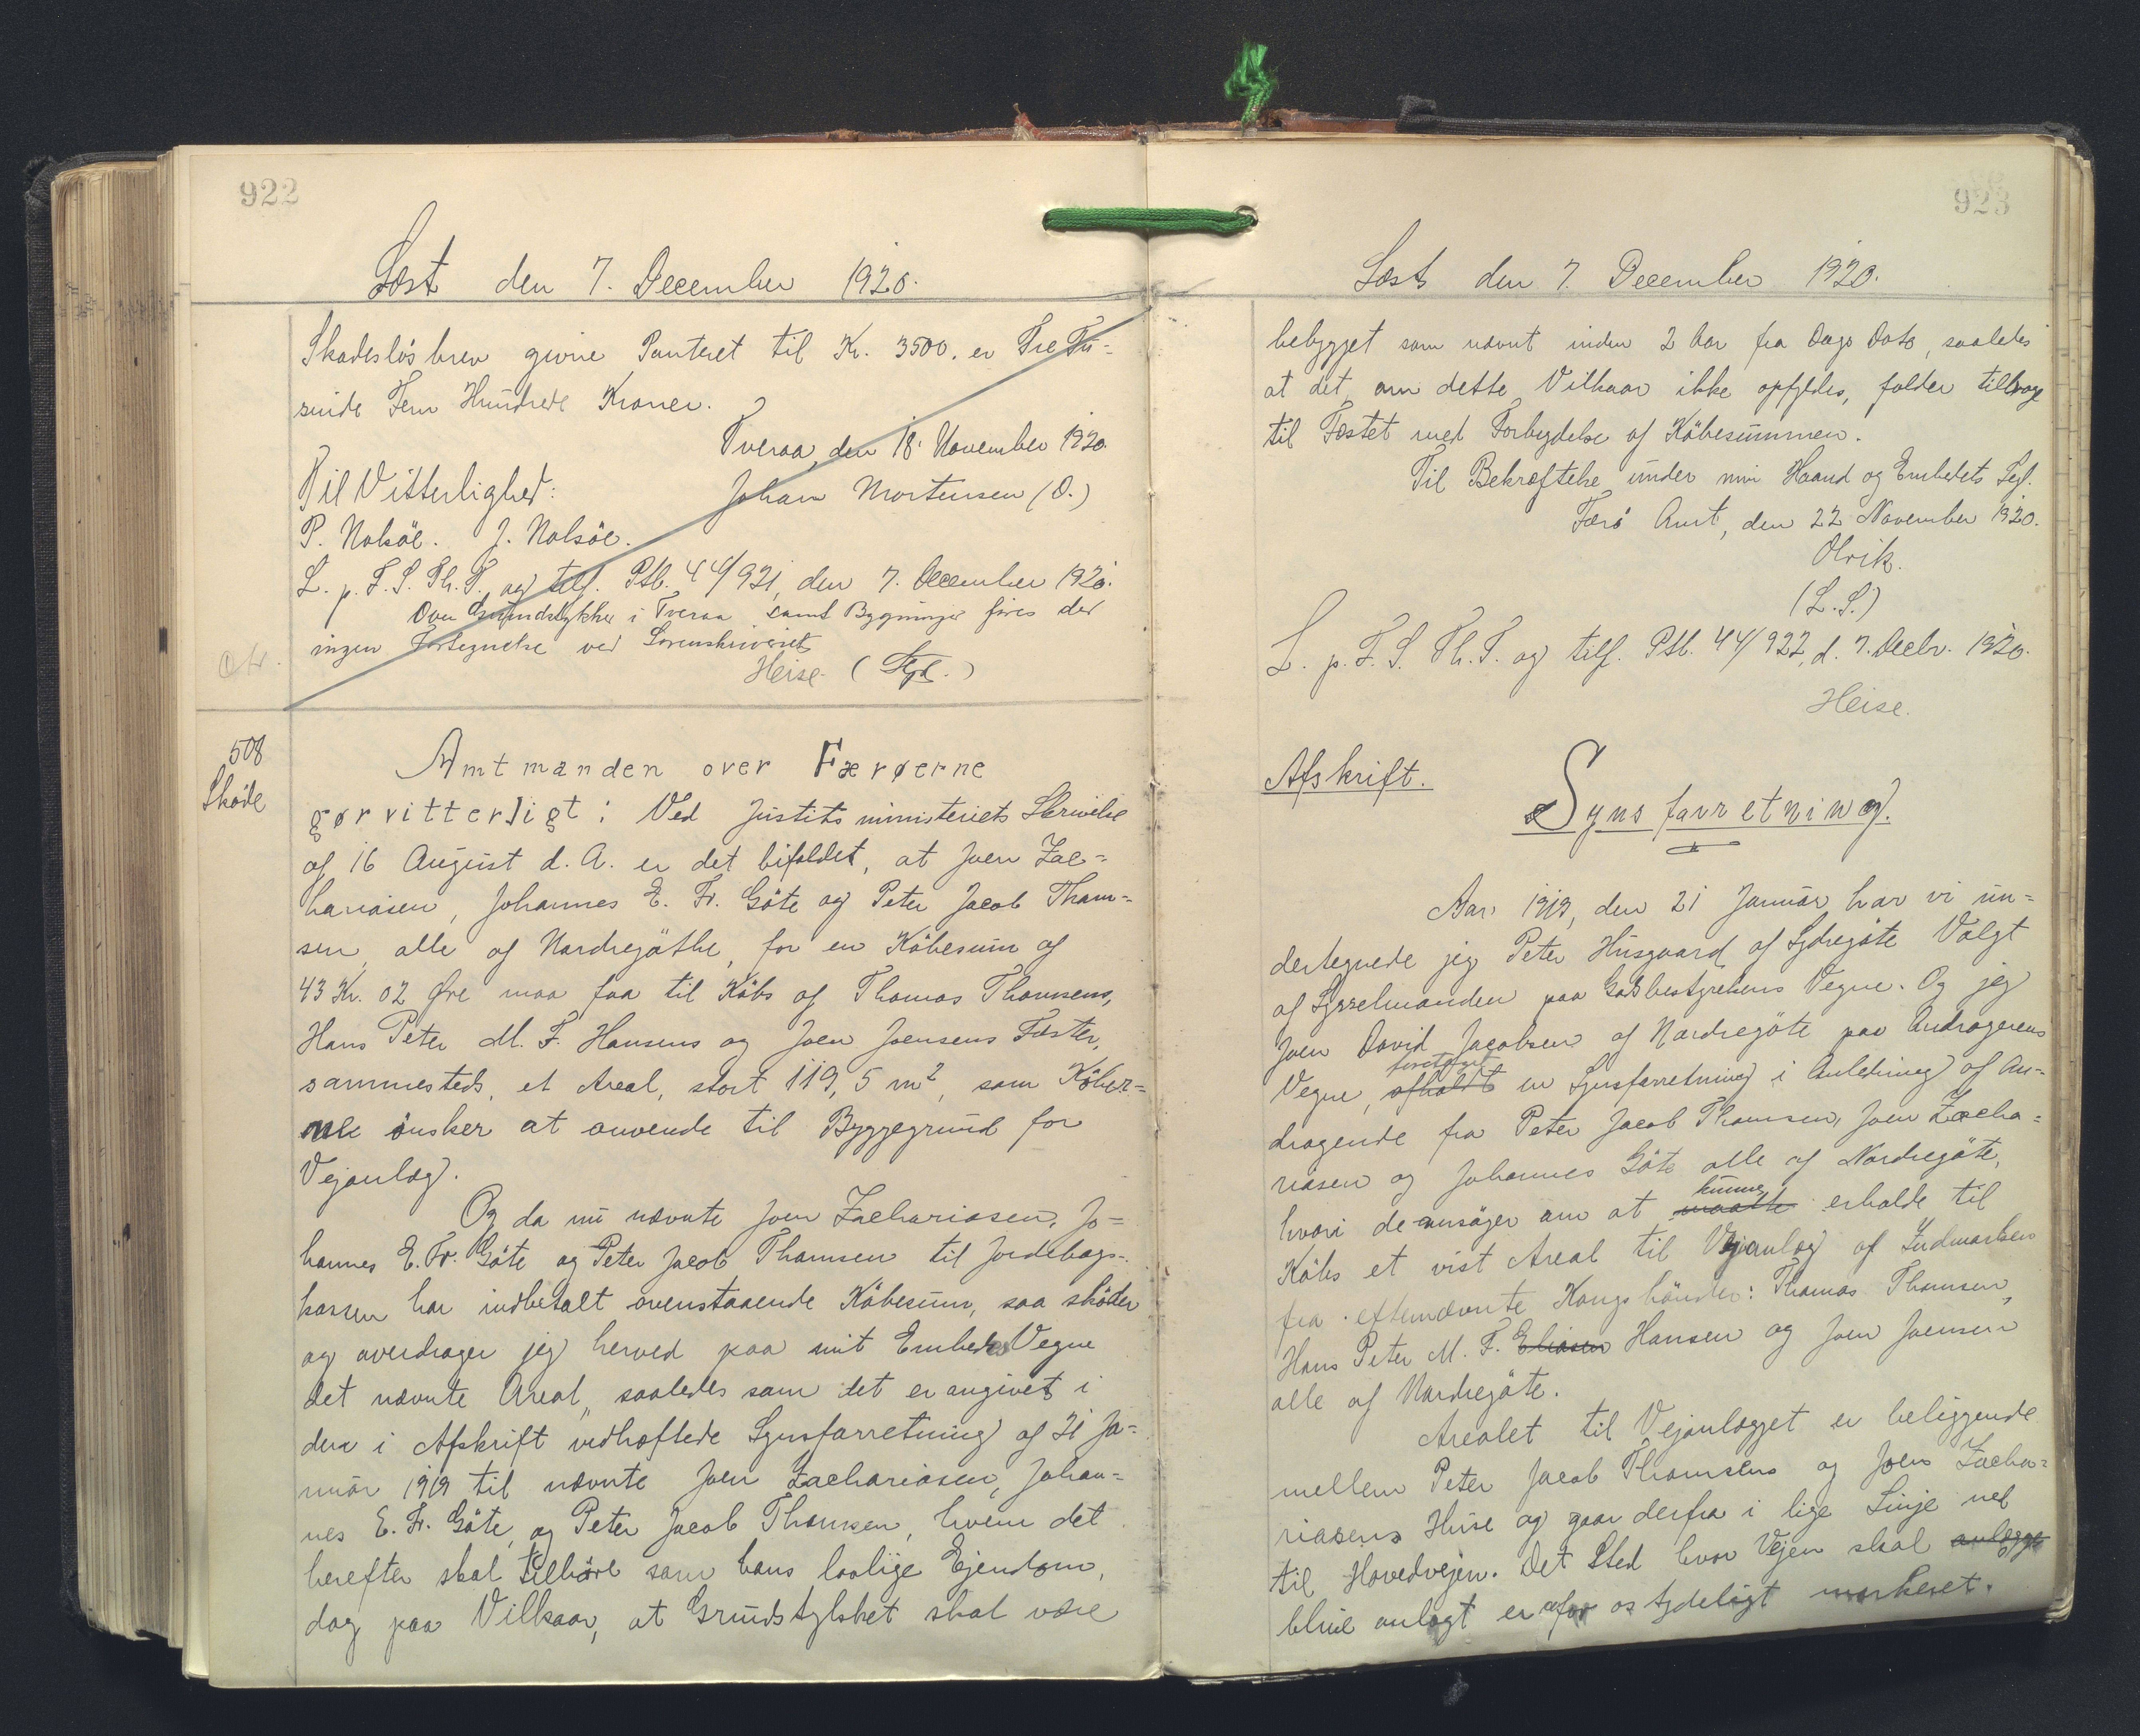 922
Læst den 7. December 1920.
Skadesløsbrev givne Panteret til Kr. 3500. er Tre Tu=
sinde Fem Hundrede Kroner.
Tveraa, den 18. November 1920.
Til Vitterlighed:
Johan Mortensen (O.)
P. Nolsöe. J. Nolsöe.
L. p. F. S. Th. T. og tilf. Ptb. 44/921, den 7. December 1920.
Over Grundstykker i Tveraa samt Bygninger føres der
ingen Fortegnelse ved Sorenskriveriet
Heise.
508
Sköde
Amtmanden over Færøerne
gør vitterligt: Ved Justitsministeriets Skrivelse
af 16 August d. A. er det bifaldet, at Joen Zac=
hariasen, Johannes E. Fr. Göte og Peter Jacob Thom=
sen, alle af Nordregöthe, for en Köbesum af
43 Kr. 02 Øre maa faa til Köbs af Thomas Thomsens,
Hans Peter M. F. Hansens og Joen Joensens Fæster,
sammesteds, et Areal, stort 119,5 m², som Köber=
ne önsker at anvende til Byggegrund for
Vejanlæg.
Og da nu nævnte Joen Zachariasen, Jo=
hannes E. Fr. Göte og Peter Jacob Thomsen til Jordebogs-
kassen har indbetalt ovenstaaende Köbesum, saa sköder
og overdrager jeg herved paa mit Embedes Vegne
det nævnte Areal, saaledes som det er angivet i
den i Afskrift vedhæftede Synsforretning af 21 Ja=
nuar 1919 til nævnte Joen Zachariasen, Johan=
nes E. Fr. Göte, og Peter Jacob Thomsen, hvem det
herefter skal tilhöre som hans lovlige Ejendom,
dog paa Vilkaar, at Grundstykket skal være
923
Læst den 7. December 1920.
bebygget som nævnt inden 2 Aar fra Dags Dato, saaledes
at det, om dette Vilkaar ikke opfyldes, falder tilbage
til Fæstet med Fortydelse af Köbesummen.
Til Bekræftelse under min Haand og Embedets Segl.
Færö Amt, den 22 November 1920.
Olrik.
(L. S.)
L. p. F. S. Th. T. og tilf. Ptb. 44/922, d. 7. Decbr. 1920.
Heise.
Afskrift.
Synsforretning.
Aar 1919, den 21 Januar har vi un=
dertegnede jeg Peter Husgaard af Sydregöte Valgt
af Sysselmanden paa Godsbestyrelsens Vegne. Og jeg
Joen David Jacobsen af Nordregöte paa Andragerens
foretaget
Vegne, afholdt en Synsforretning i Anledning af An=
dragende fra Peter Jacob Thomsen, Joen Zacha=
riasen og Johannes Göte alle af Nordregöte,
kunne
hvori de ansöger om at maatte erholde til
Köbs et vist Areal til Vejanlæg af Indmarken
fra efternævnte Kongsbönder: Thomas Thomsen,
Hans Peter M. F. Eliasen Hansen og Joen Joensen
alle af Nordregöte.
Arealet til Vejanlægget er beliggende
mellem Peter Jacob Thomsens og Joen Zacha=
riasens Huse og gaar derfra i lige Linje ned
til Hovedvejen. Det Sted hvor Vejen skal anlægge
blive anlagt er af os tydeligt markeret.